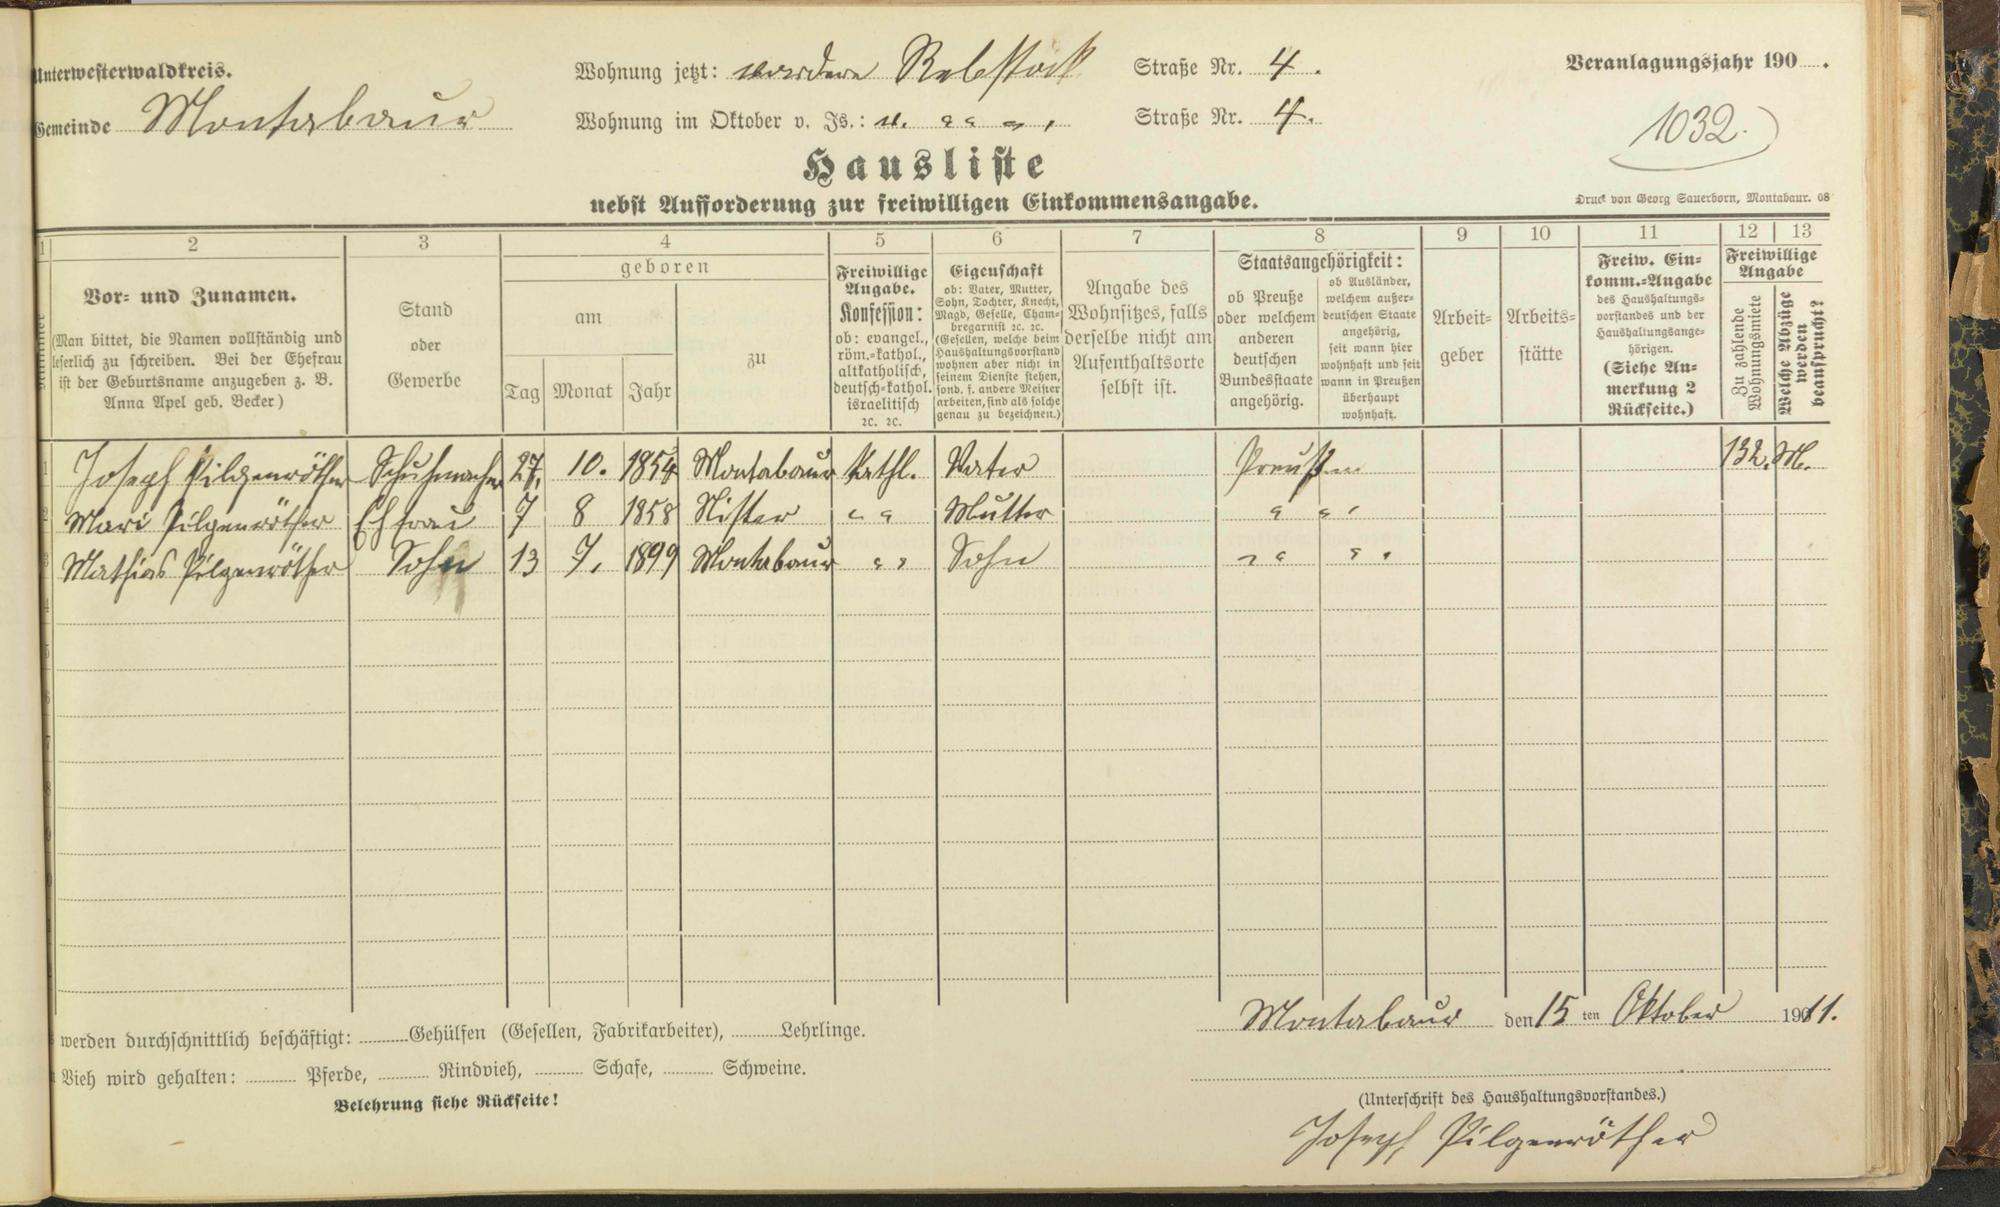 Unterwesterwaldkreis.
Gemeinde Montabaur
Wohnung jetzt: vordere Rebstock Straße Nr. 4.
Wohnung im Oktober v. Js.: v. " " " Straße Nr. 4.
Veranlagungsjahr 190 .
1032.
Hausliste
nebst Aufforderung zur freiwilligen Einkommensangabe.
Druck von Georg Sauerborn, Montabaur. 08
1 2 3 4 5 6 7 8 9 10 11 12 13
Nummer
Vor- und Zunamen.
(Man bittet, die Namen vollständig und
leserlich zu schreiben. Bei der Ehefrau
ist der Geburtsname anzugeben z. B.
Anna Apel geb. Becker.)
Stand
oder
Gewerbe
geboren
am
Tag Monat Jahr
zu
Freiwillige
Angabe.
Konfession:
ob: evangel.,
röm.-kathol.,
altkatholisch,
deutsch-kathol.
israelitisch
ꝛc. ꝛc.
Eigenschaft
ob: Vater, Mutter,
Sohn, Tochter, Knecht,
Magd, Geselle, Cham-
bregarnist ꝛc. ꝛc.
(Gesellen, welche beim
Haushaltungsvorstand
wohnen aber nicht in
seinem Dienste stehen,
sond. f. andere Meister
arbeiten, sind als solche
genau zu bezeichnen.)
Angabe des
Wohnsitzes, falls
derselbe nicht am
Aufenthaltsorte
selbst ist.
Staatsangehörigkeit:
ob Preuße
oder welchem
anderen
deutschen
Bundesstaate
angehörig.
ob Ausländer,
welchem außer-
deutschen Staate
angehörig,
seit wann hier
wohnhaft und seit
wann in Preußen
überhaupt
wohnhaft.
Arbeit-
geber
Arbeits-
stätte
Freiw. Ein-
komm.-Angabe
des Haushaltungs-
vorstandes und der
Haushaltungsange-
hörigen.
(Siehe An-
merkung 2
Rückseite.)
Freiwillige
Angabe
Zu zahlende
Wohnungsmiete
Welche Abzüge
werden
beansprucht?
1 Joseph Pilgenröther Schuhmacher 27. 10. 1854 Montabaur Kathl. Vater Preußen 132. M.
2 Mari Pilgenröther Ehfrau 7 8 1858 Nister " " Mutter " " "
3 Mathias Pilgenröther Sohn 13 7. 1899 Montabaur " " Sohn " " " "
4
5
6
7
8
9
Montabaur den 15 ten Oktober 1911.
werden durchschnittlich beschäftigt: Gehülfen (Gesellen, Fabrikarbeiter), Lehrlinge.
Vieh wird gehalten: Pferde, Rindvieh, Schafe, Schweine.
Belehrung siehe Rückseite!
(Unterschrift des Haushaltungsvorstandes.)
Joseph Pilgenröther